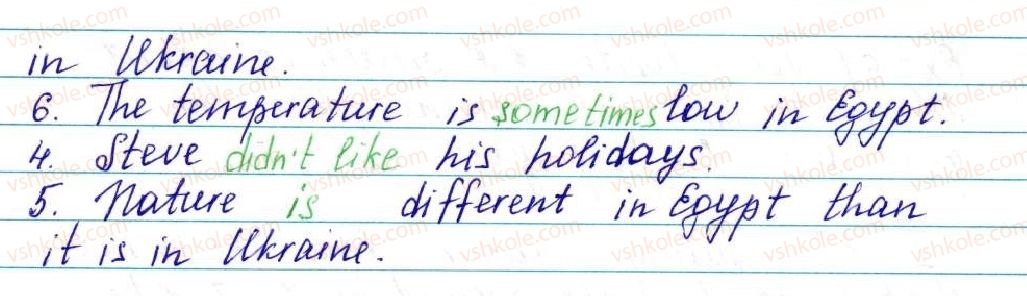 in Ukraine.
6. The temperature is sometimes low in Egypt.
4. Steve didn't like his holidays.
5. Nature is different in Egypt than
it is in Ukraine.